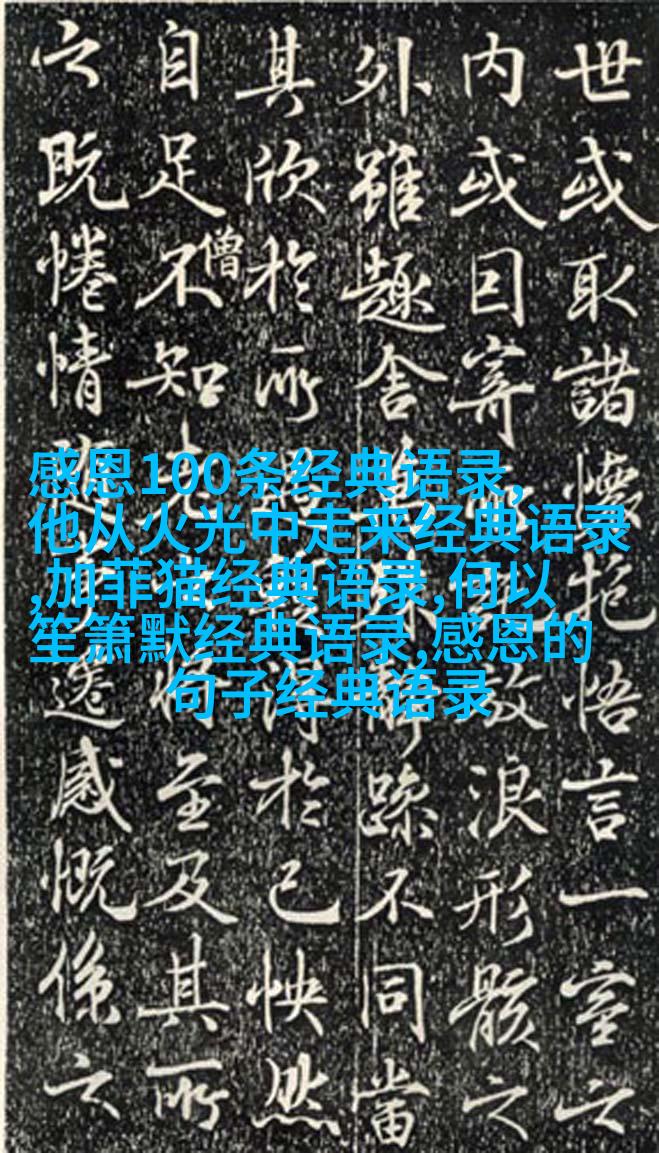 世或取諸懷抱悟言一室之
内或因寄放浪形骸之
外雖趣舍躁不同當
其欣於所得於己怏然
自足不知老將至及其所
僧
之既惓情遷感慨係之
感恩100条经典语录,
他从火光中走来经典语录
,加菲猫经典语录,何以
笙箫默经典语录,感恩的
句子经典语录